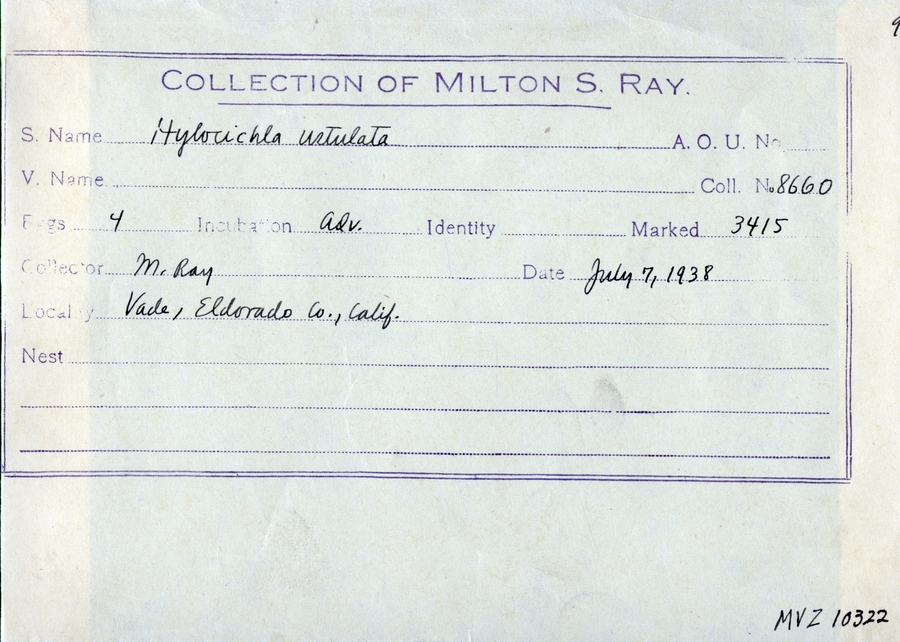 COLLECTION OF MILTON S. RAY.
S. Name Hylocichla ustulata A. O. U. No.
V. Name Coll. No. 8660
Eggs 4 Incubation adv. Identity Marked 3415
Collector M. Ray Date July 7, 1938
Locality Vade, Eldorado Co., Calif.
Nest
MVZ 10322